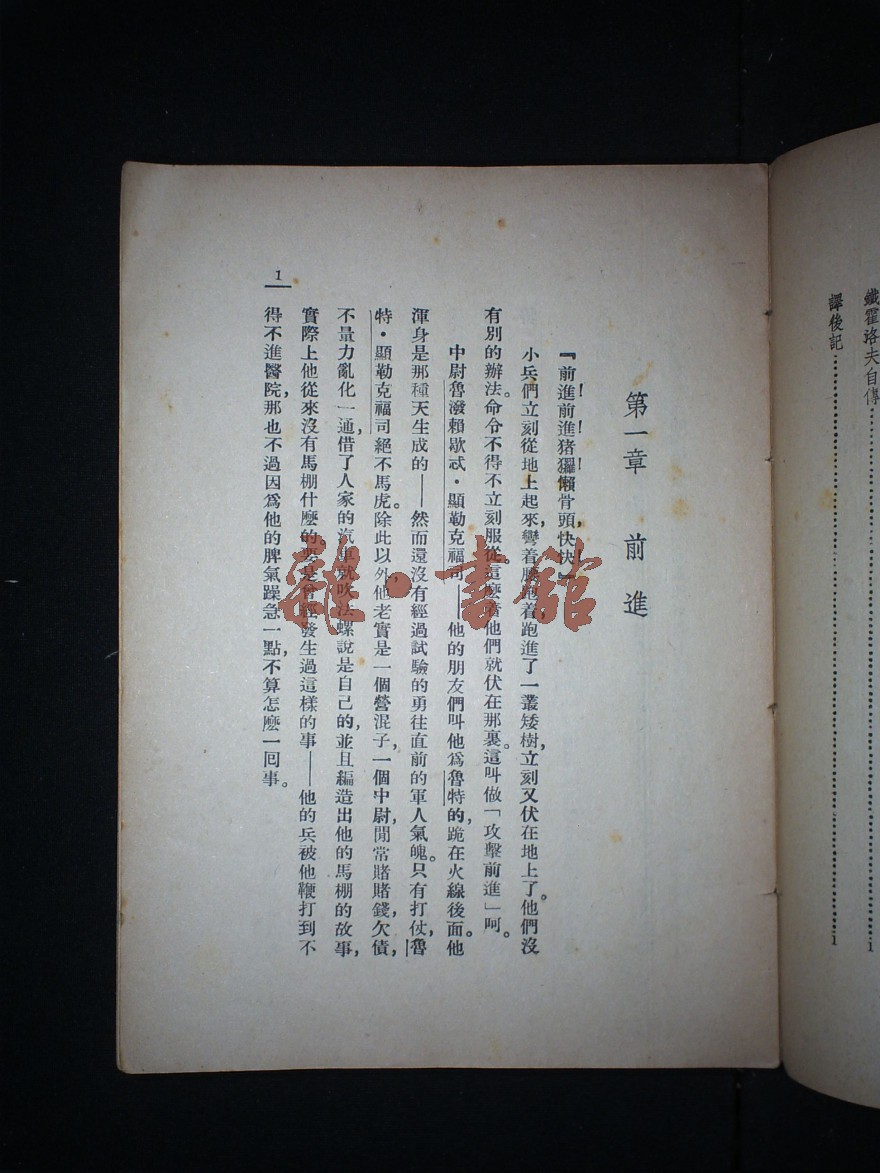 鐵霍洛夫自傳……1
譯後記……1
第一章　前進
『前進！前進！猪玀！懶骨頭，快！快！』
小兵們立刻從地上起來，彎着腰，跑着跑進了一叢矮樹，立刻又伏在地上了。他們沒
有別的辦法。命令不得不立刻服從。這麼着他們就伏在那裏。這叫做「攻擊前進」呵。
中尉魯潑賴歇忒・顯勒克福司——他的朋友們叫他爲魯特的，跪在火線後面。他
渾身是那種天生成的——然而還沒有經過試驗的勇往直前的軍人氣魄。只有打仗，魯
特・顯勒克福司絕不馬虎。除此以外，他老實是一個營混子，一個中尉，閒常賭賭錢，欠債，
不量力亂化一通，借了人家的汽車就吹法螺說是自己的，並且編造出他的馬棚的故事，
實際上他從來沒有馬棚什麼的。要是曾經發生過這樣的事——他的兵被他鞭打到不
得不進醫院，那也不過因爲他的脾氣躁急一點，不算怎麼一囘事。
1
雜・書館